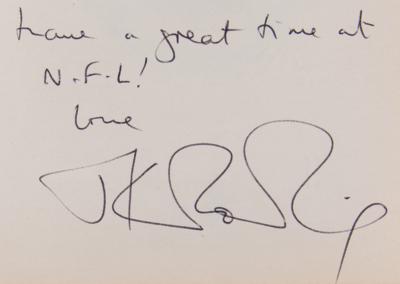 have a great time at
N.F.L!
love
JK Rowling